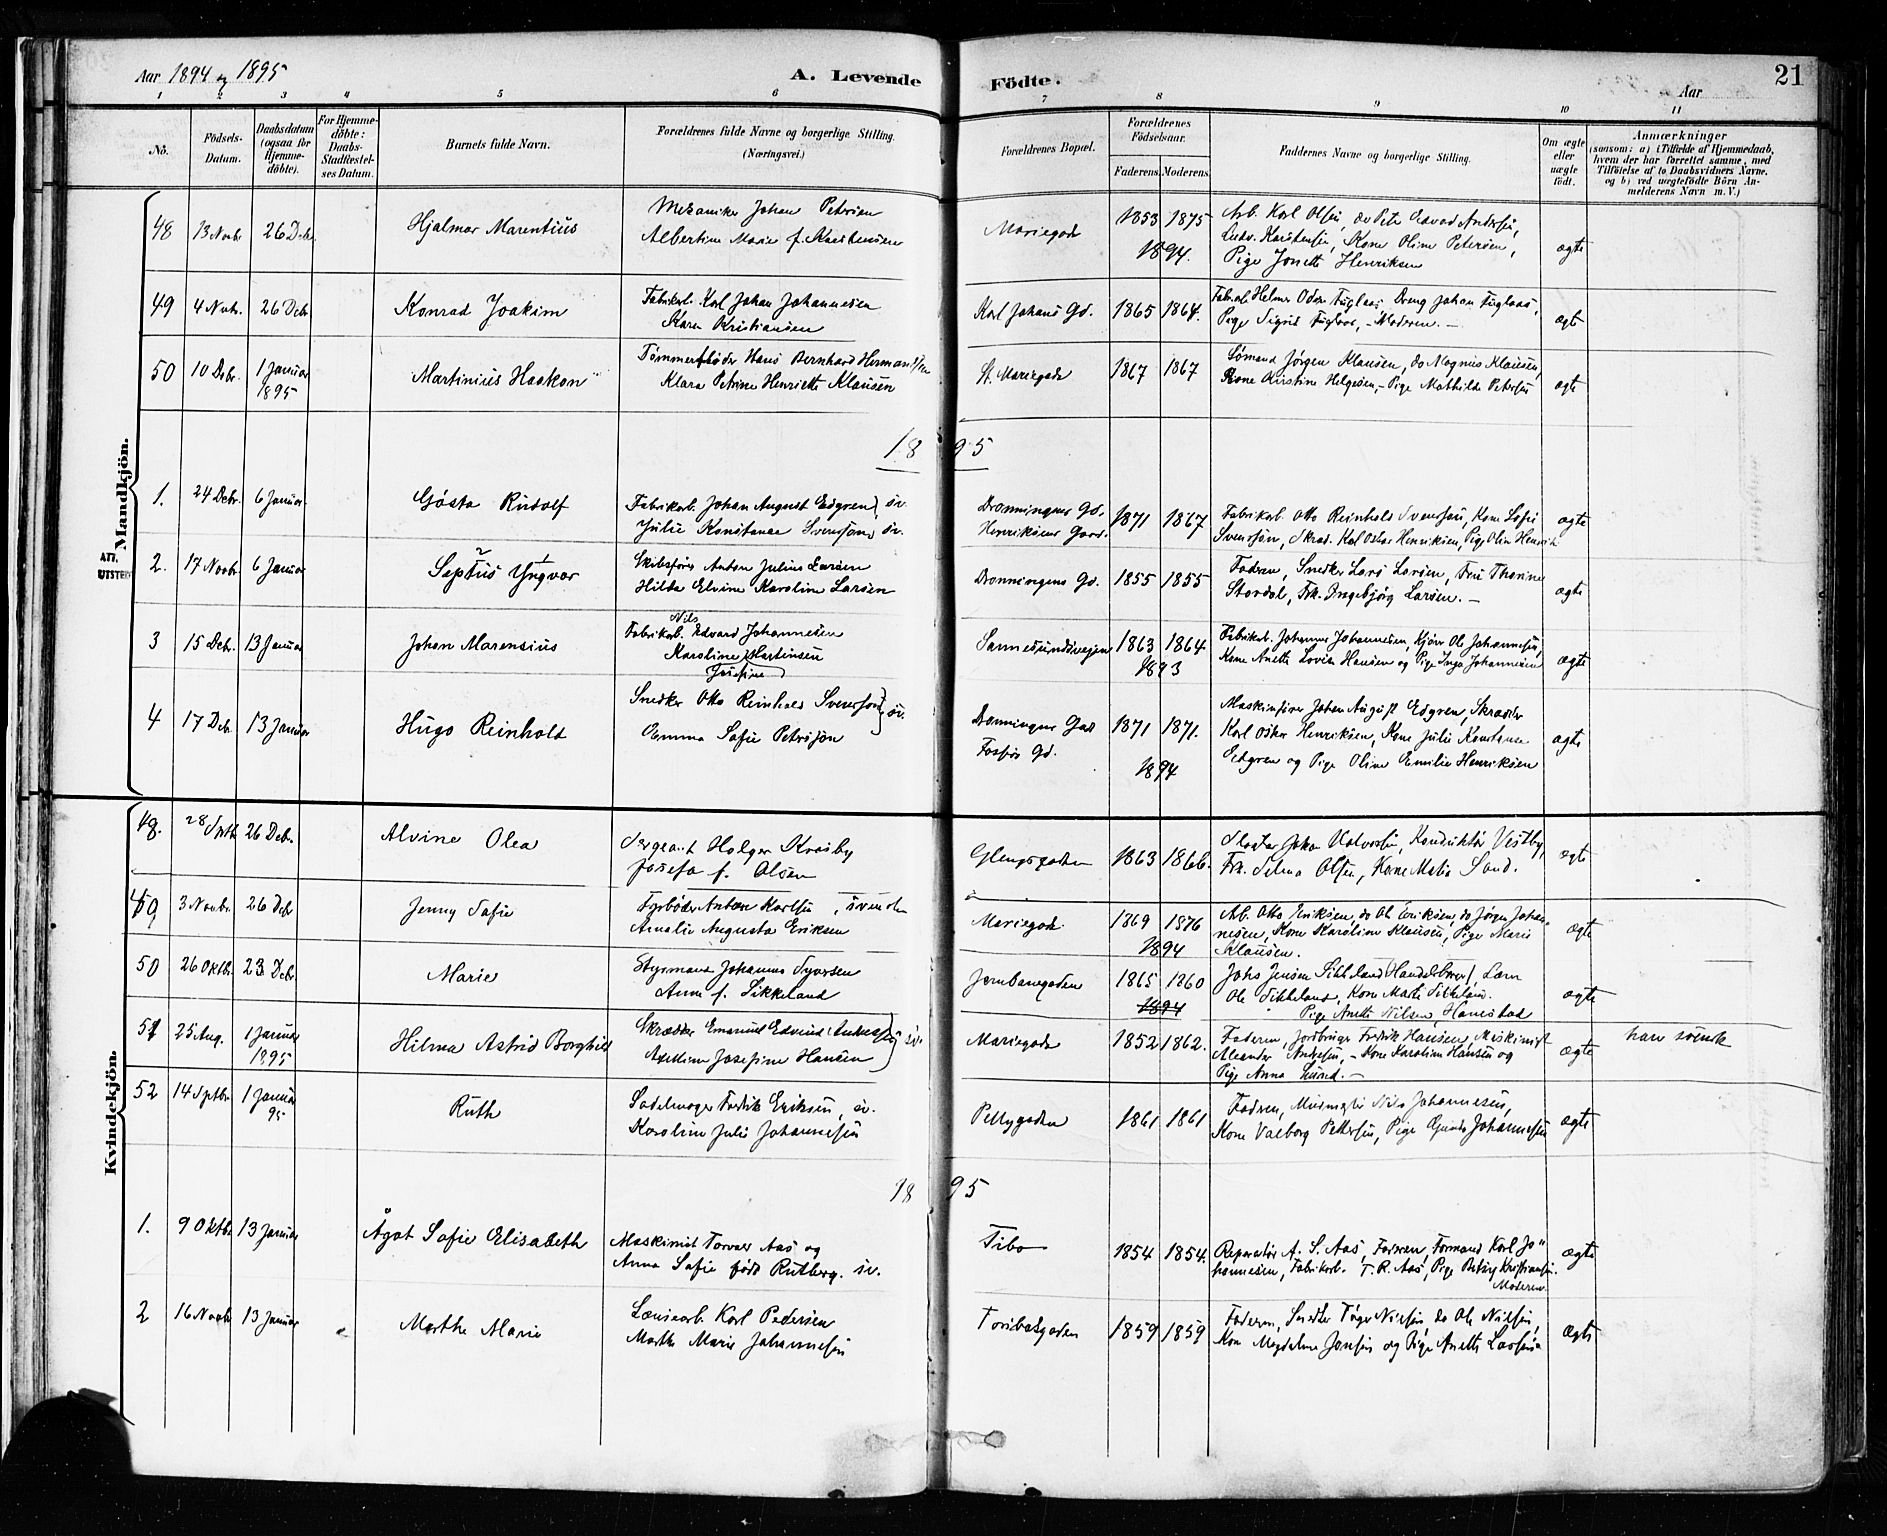 Aar 1894 og 1895
A. Levende Födte.
Aar
21
1 2 3 4 5 6 7 8 9 10 11
No.
Födsels-Datum.
Daabsdatum (ogsaa for Hjemme-döbte).
For Hjemme-döbte: Daabs-Stadfæstel-ses Datum.
Barnets fulde Navn.
Forældrenes fulde Navne og borgerlige Stilling. (Næringsvei.)
Forældrenes Bopæl.
Forældrenes Födselsaar.
Faderens. Moderens.
Faddernes Navne og borgerlige Stilling.
Om ægte eller uægte födt.
Anmærkninger
(saasom: a) i Tilfælde af Hjemmedaab, hvem der har forrettet samme, med Tilföielse af to Daabsvidners Navne, og b) ved uægtefödte Börn An-melderens Navn m. V.)
Mandkjön.
ATT. UTSTEDT
48 13 Novbr. 26 Debr. Hjalmar Marentius
Mekaniker Johan Petersen
Albertine Marie f. Karstensen
Mariegade 1853 1875
1894.
Arb. Karl Olsen, do Peter Edvard Andersen,
Ludv. Karstensen, Kone Oline Petersen,
Pige Jonette Henriksen
ægte
49 4 Nvbr. 26 Debr. Konrad Joakim
Fabrikarb. Karl Johan Johannesen
Karen Kristiansen
Karl Johans Gd. 1865 1864.
Fabrarb. Helmer Odin Fuglaas, Dreng Johan Fuglaas,
Pige Sigrid Fuglaas, - Moderen. -
ægte
50 10 Debr. 1 Januar 1895 Martinius Haakon
Tömmerfløder Hans Bernhard Hermansen
Klara Petrine Henriette Klausen
St. Mariegade 1867 1867
Sömand Jörgen Klausen, do Magnus Klausen,
Kone Kirstine Helgesen, - Pige Mathilde Petersen
ægte
1895
1. 24 Debr. 6 Januar Gösta Rudolf
Fabrikarb. Johan August Edgren, sv.
Julie Konstance Svensson, sv.
Dronningens Gd. Henriksens Gaard. 1871 1867
Fabrikarb. Otto Reinhold Svensson, Kone Sofie
Svensson, Skræd. Karl Oskar Henriksen, Pige Olin Henrik
ægte
2. 17 Novbr. 6 Januar Septus Yngvar
Skibsförer Anton Julius Larsen
Hilda Elvine Karoline Larsen
Dronningens Gd. 1855 1855
Faderen, Snedker Lars Larsen, Fru Thorine
Stordal, Frk. Ingebjörg Larsen. -
ægte
3 15 Debr. 13 Januar Johan Marensius
Nils
Fabrikarb. Edvard Johannesen
Karoline Martinsen
Josefine
Sannesundsveien 1863 1864
1893
Fabrikarb. Johannes Johannesen, Kjörer Ole Johannesen,
Kone Anette Lovise Hansen og Pige Inga Johannesen
ægte
4 17 Debr. 13 Januar Hugo Reinhold
Snedker Otto Reinhold Svensson, sv.
Emma Sofie Petersson
Dronningens Gade Fosfors Gd. 1871 1871.
1894
Maskinförer Johan August Edgren, Skrædder
Karl Oskar Henriksen, Kone Julie Konstanse
Edgren og Pige Oline Emilie Henriksen
ægte
Kvindekjön.
48. 28 Septb. 26 Debr. Alvine Olea
Sergeant Holger Kraaby
Josefa f. Olsen
Glengsgaden 1863 1866.
Slagter Johan Halvorsen, Konduktör Vestby,
Frk. Selma Olsen, Kone Matia Sand.
ægte
49 3 Novbr. 26 Debr Jenny Sofie
Fyrböder Anton Karlsen, svensk
Amalie Augusta Eriksen
Mariegade 1869 1876
1894
Arb. Otto Eriksen, do Ole Eriksen, do Jörgen Johan-
nesen, Kone Karoline Klausen, Pige Marie
Klausen.
ægte
50 26 Oktbr. 23 Debr. Marie
Styrmand Johannes Syversen
Anne f. Sikkeland
Jernbanegaden 1865 1860
1894
Johs Jensen Sikkeland (Handelsbors), Lærer
Ole Sikkeland, Kone Marte Sikkeland.
Pige Anette Nilsen, Hanestad
ægte
51 25 Aug. 1 Januar 1895 Hilma Astrid Borghild
Skrædder Emanuel Edvind Andersson, sv.
Axeline Josefine Hansen
Mariegade 1852 1862.
Faderen, Jordbruger Fredrik Hansen, Maskinist
Alexander Andresen, - Kone Karoline Hansen og
Pige Anna Lund. -
ægte
han svensk
52 14 Sptbr. 1 Januar 95 Ruth
Sadelmager Fredrik Eriksen, sv.
Karoline Julie Johannesen
Pellygaden 1861 1861
Faderen, Nils Johannesen,
Kone Valborg Pettersen, Pige Gunda Johannesen
ægte
1895
1. 9 Oktbr. 13 Januar Ågot Sofie Elisabeth
Maskinist Torvald Aas og
Anna Sofie född Rutberg. sv.
Tibo 1854 1854.
Reparatör A. S. Aas, Faderen, Formand Karl Jo-
hannesen, Fabrikarb. T. R. Aas, Pige Betsy Kristiansen.
Moderen.
ægte
2 16 Novbr 13 Januar Marthe Marie
Lænsearb. Karl Pedersen
Marthe Marie Johannesen
Toribatgaden 1859 1859
Faderen, Snedker Töger Nilsen, do Ole Nilsen,
Kone Magdalene Jansen og Pige Anette Larsen
ægte